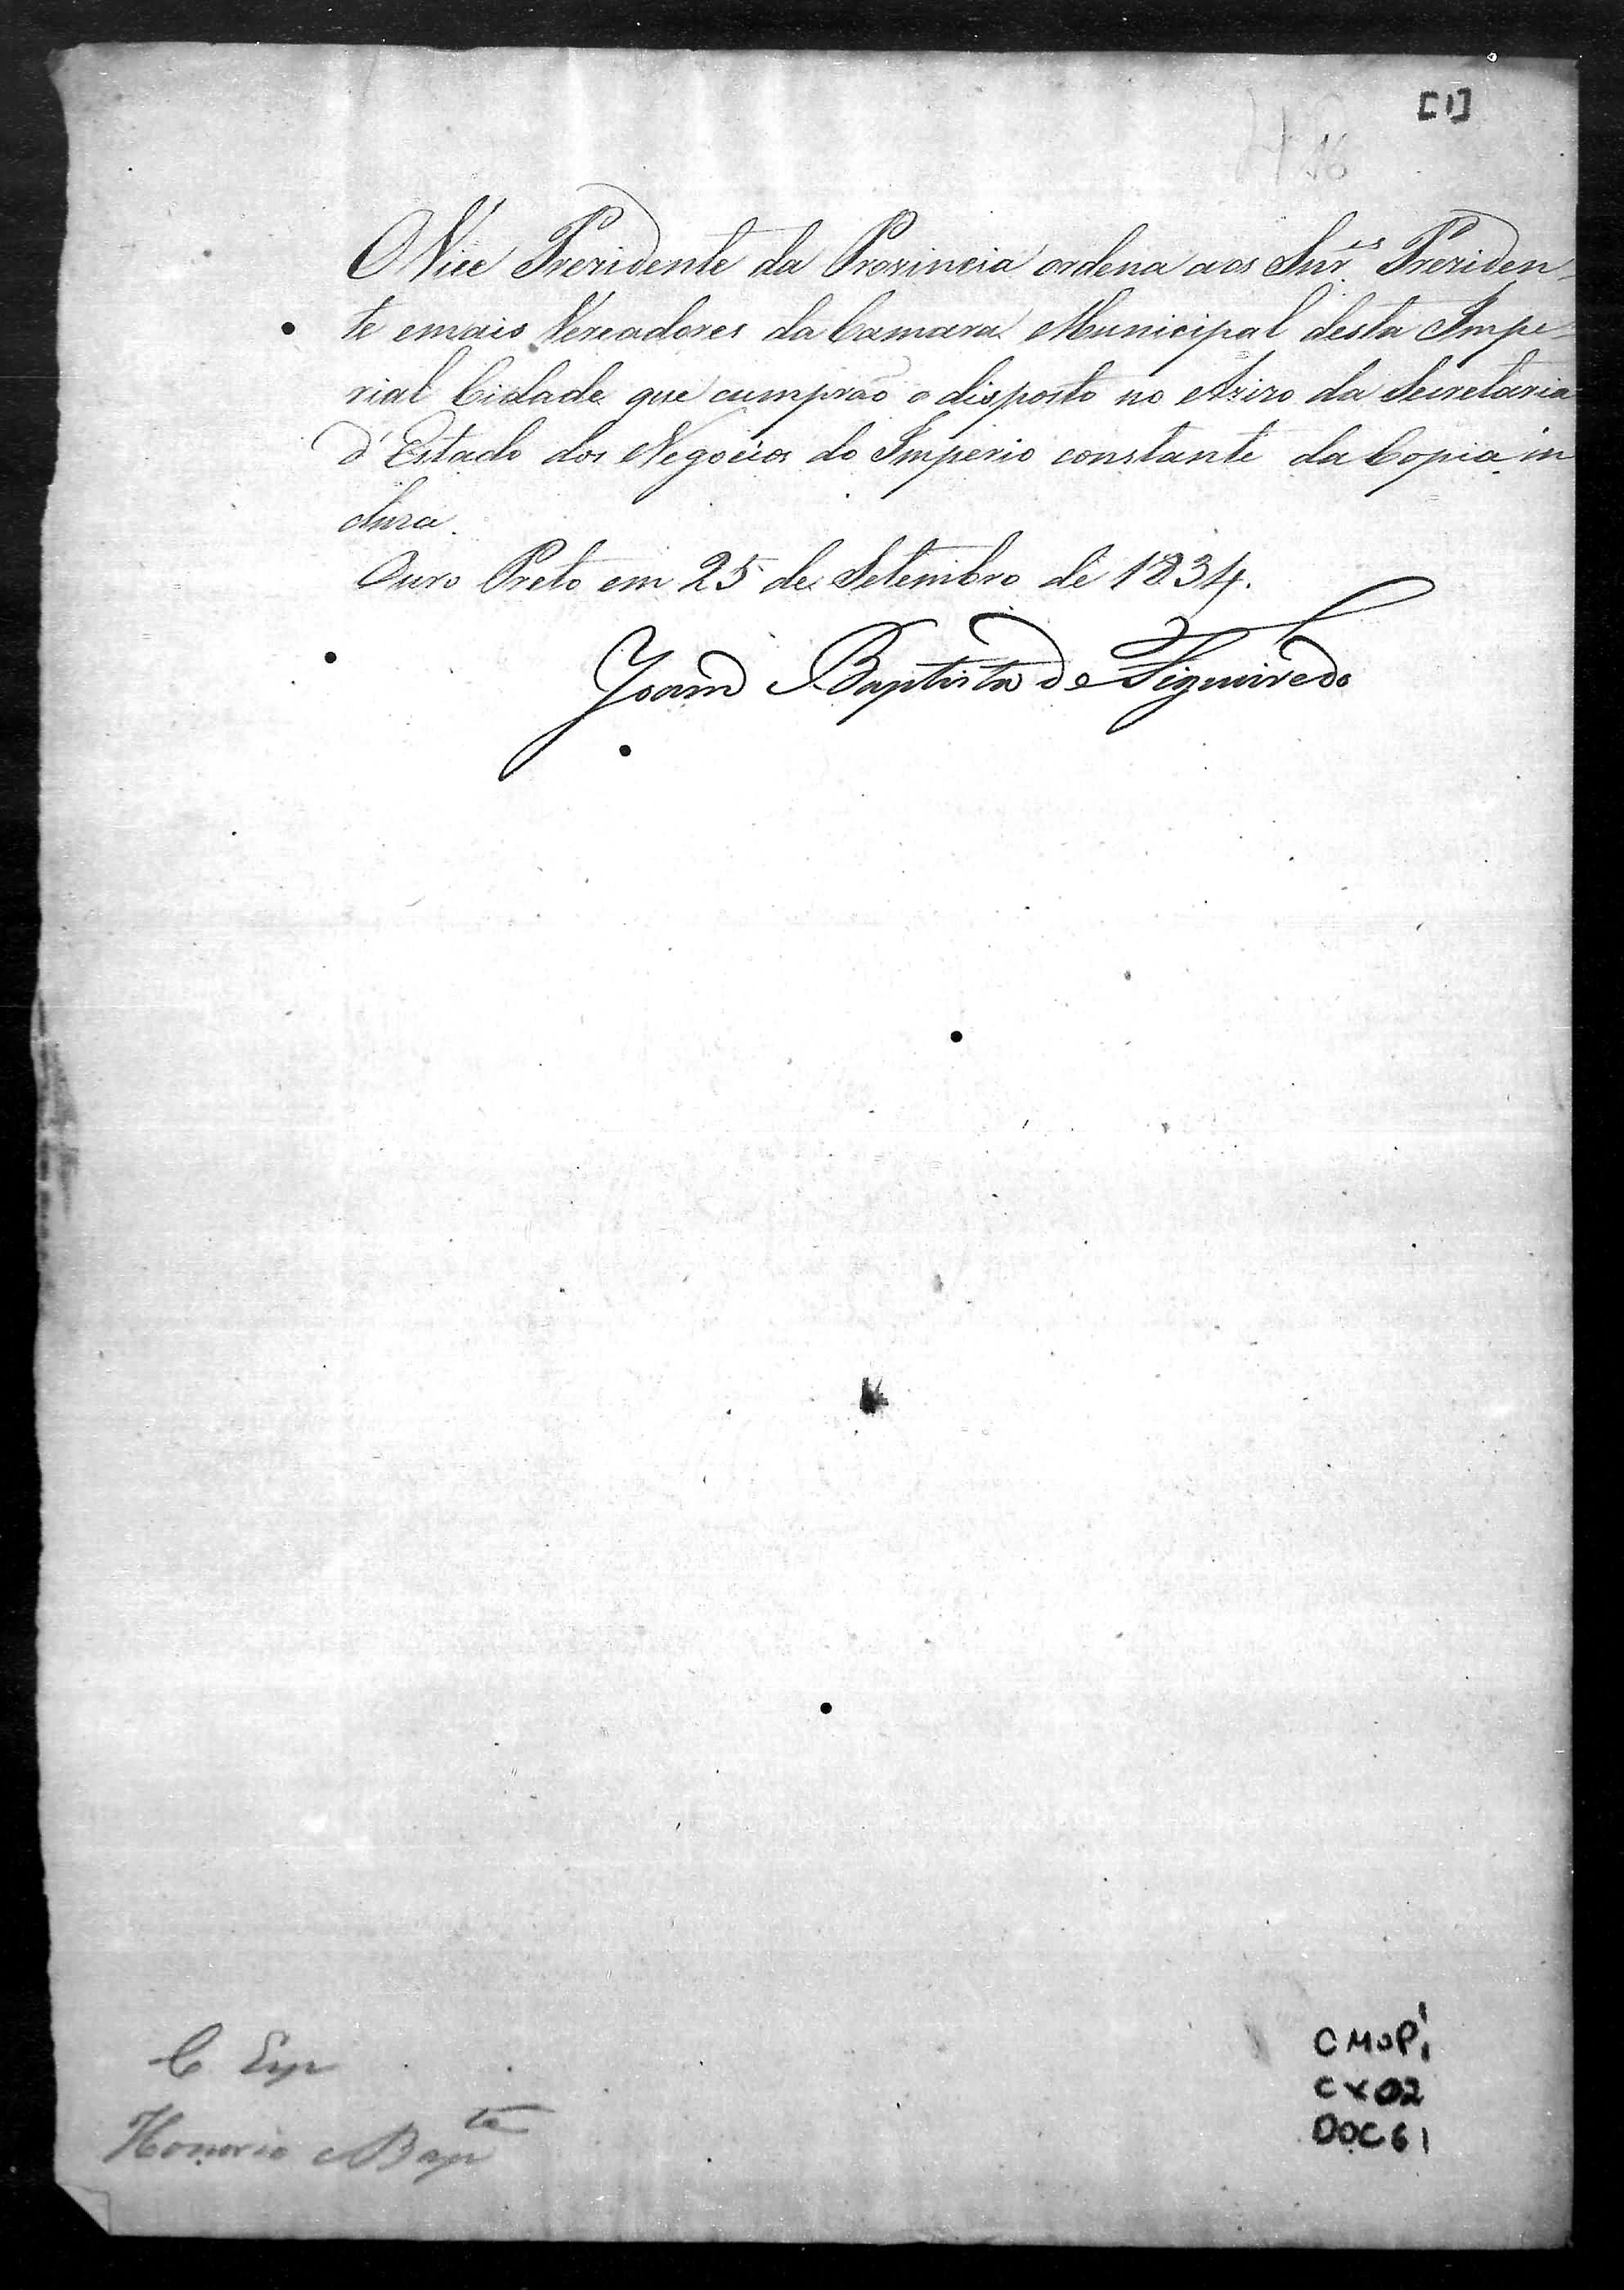 [1]
46
O Vice Prezidente da Provincia ordena aos Snr.es Preziden-
te emais Vereadores da Camara Municipal desta Impe-
rial Cidade que cumprão o disposto no Avizo da Secretaria
d'Estado dos Negocios do Imperio constante da Copia in
cluza.
Ouro Preto em 25 de Setembro de 1834.
Joam Baptista de Figueiredo
C
Honorio Bapta
CMOP
CX02
DOC61